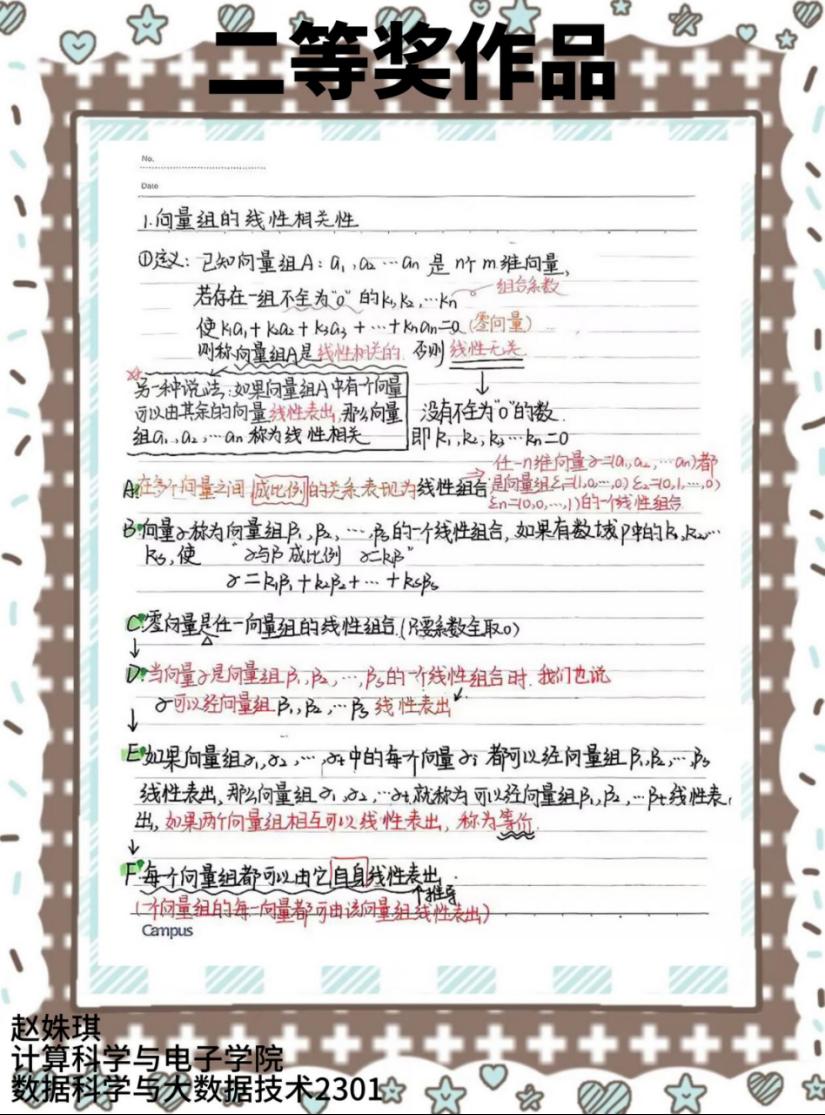 二等奖作品
No.
Date
1.向量组的线性相关性
①定义：已知向量组A：a₁,a₂…an 是n个m维向量，
若存在一组不全为“0”的k₁,k₂,…kn 组合系数
使k₁a₁+k₂a₂+k₃a₃+…+knan=0 (零向量)
则称向量组A是线性相关的. 否则线性无关.
另一种说法:如果向量组A中有一个向量
可以由其余的向量线性表出,那么向量
组a₁,a₂,…an 称为线性相关
没有不全为“0”的数.
即k₁,k₂,k₃…kn=0
任一n维向量α=(a₁,a₂,…an)都
A:在多个向量之间成比例的关系表现为线性组合 是向量组ε₁=(1,0…,0) ε₂=(0,1,…,0)
εn=(0,0,…,1)的一个线性组合
B:向量α称为向量组β₁,β₂,…,βs的一个线性组合,如果有数域P中的k₁,k₂…
ks,使 “α与β成比例 α=kβ”
α=k₁β₁+k₂β₂+…+ksβs
C:零向量是任一向量组的线性组合.(只要系数全取0)
D:当向量α是向量组β₁,β₂,…,βs的一个线性组合时.我们也说
α可以经向量组β₁,β₂,…βs 线性表出
E:如果向量组α₁,α₂,…,αt中的每个向量αi 都可以经向量组β₁,β₂,…βs
线性表出,那么向量组α₁,α₂,…αt就称为可以经向量组β₁,β₂,…βt线性表
出,如果两个向量组相互可以线性表出,称为等价.
F:每个向量组都可以由它自身线性表出.
推导
(一个向量组的每一向量都可由该向量组线性表出)
Campus
赵姝琪
计算科学与电子学院
数据科学与大数据技术2301